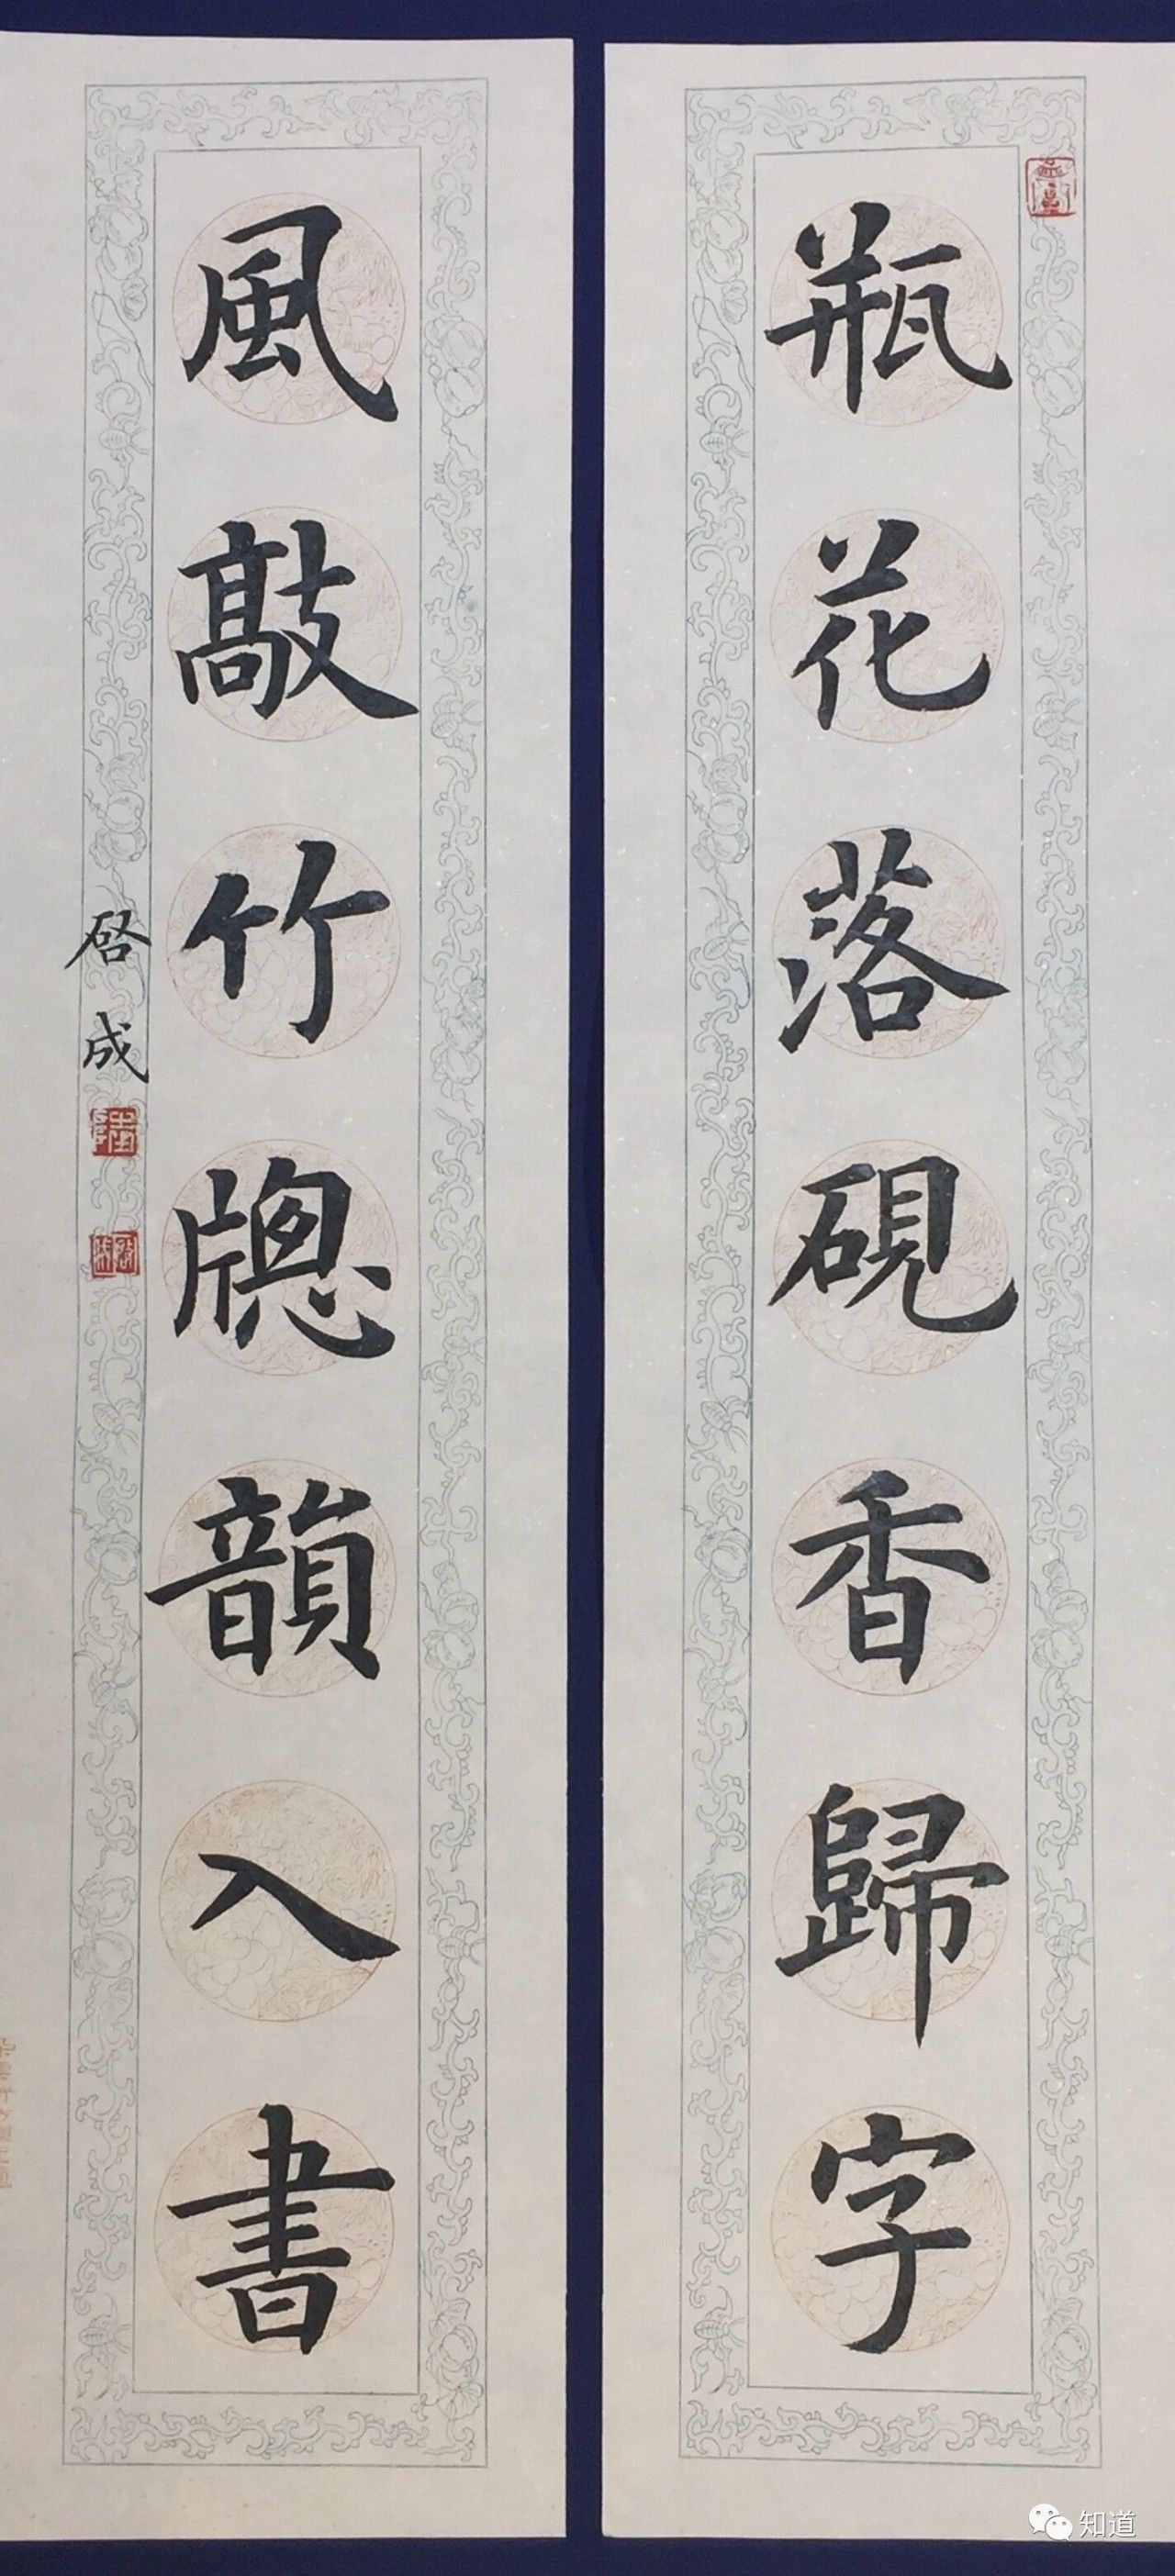 瓶花落硯香歸字
風敲竹牕韻入書
啓成
知道